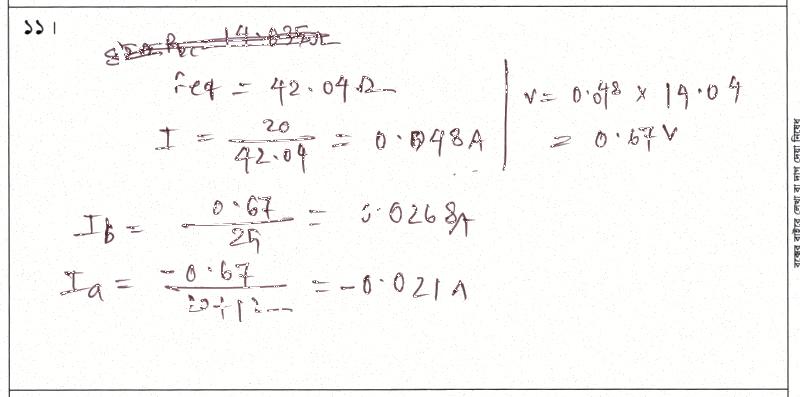 ১১।
Req = 42.04 Ω
I = 20/42.04 = 0.048A
V = 0.048 × 14.04
= 0.67 V
I_b = 0.67/25 = 0.0268A
I_a = -0.67/ = -0.021 A
বক্সের বাইরে লেখা বা দাগ দেয়া নিষেধ